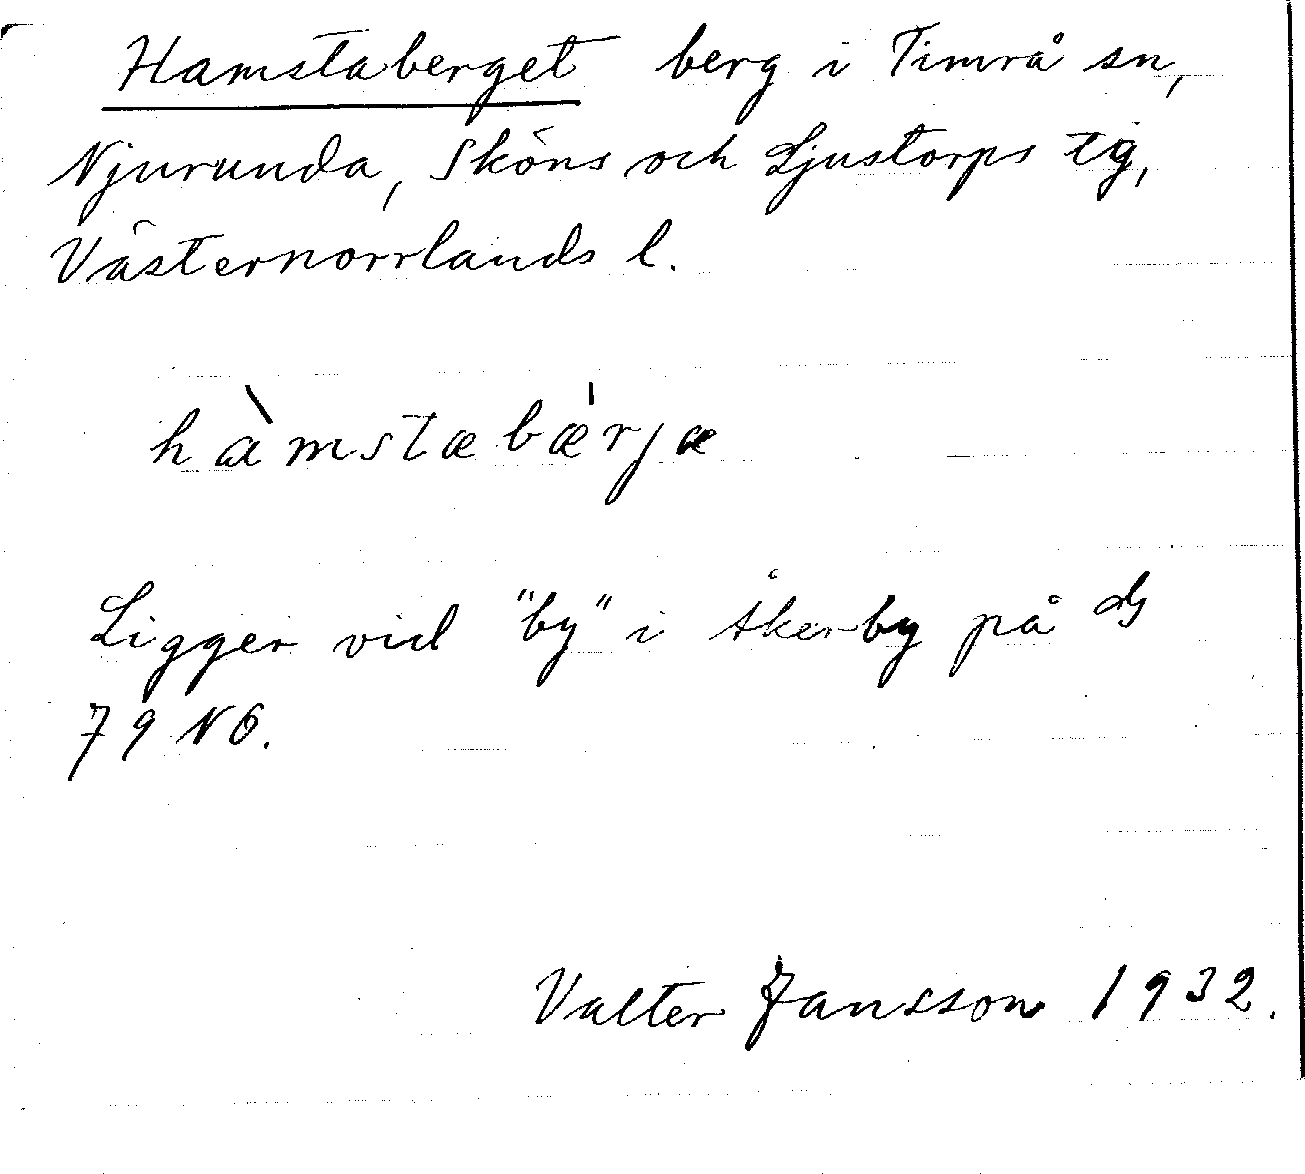 Hamstaberget berg i Timrå sn,
Njurunda, Sköns och Ljustorps tg,
Västernorrlands l.
hàmstæbæ̍rjæ
Ligger vid "by" i Åkerby på
79 NO.
Valter Jansson 1932.